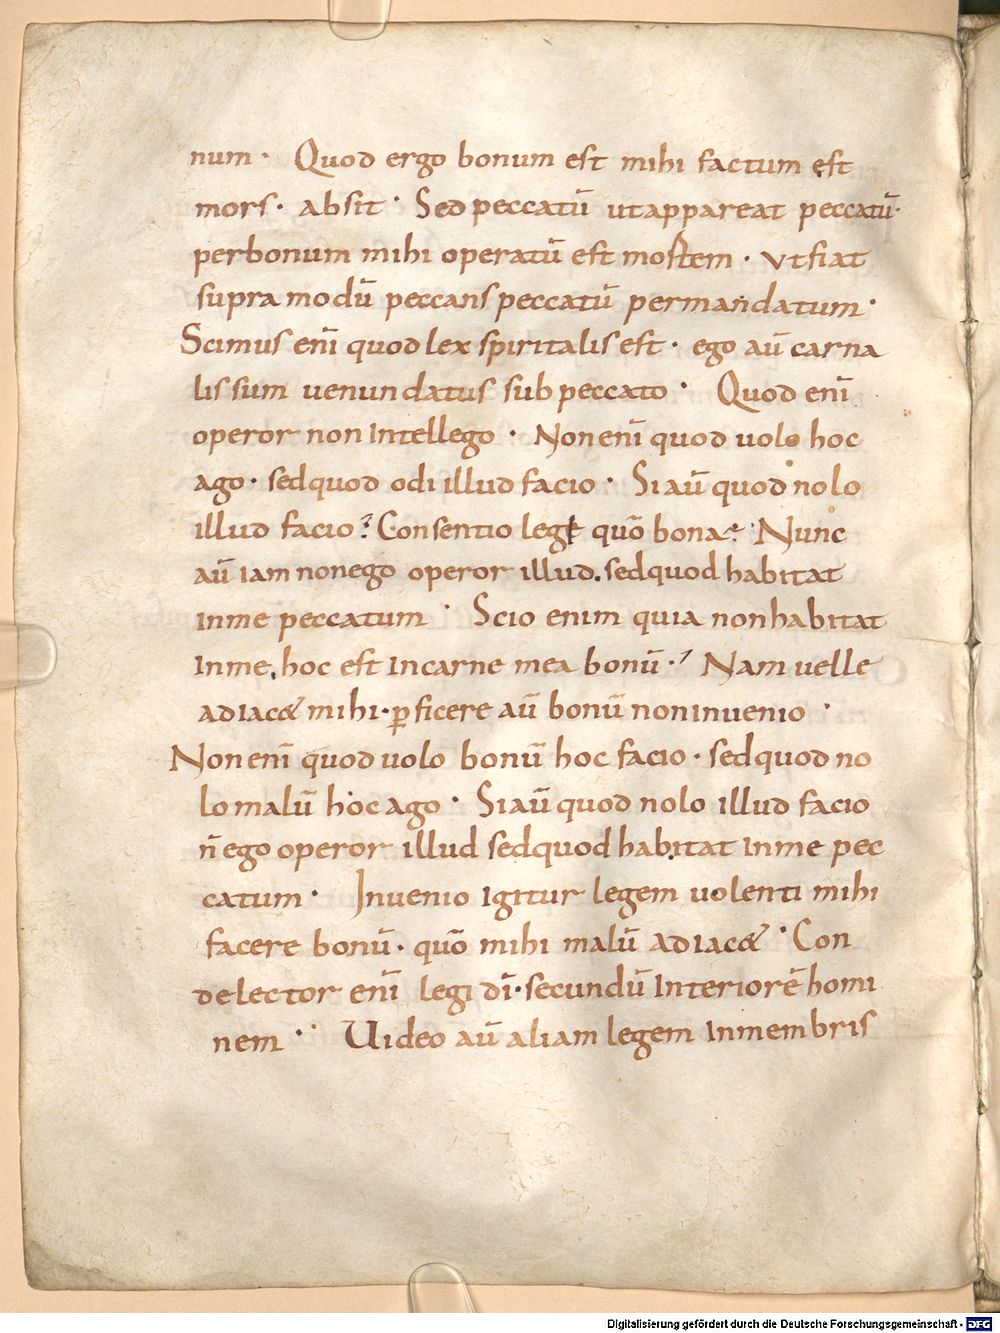 num · Quod ergo bonum est mihi factum est
mors · absit · Sed peccatū ut appareat peccatū ·
per bonum mihi operatū est mortem · Ut fiat
supra modū peccans peccatū per mandatum ·
Scimus enī quod lex spiritalis est · ego aū carna
lis sum uenundatus sub peccato · Quod enī
operor non intellego · Non enī quod uolo hoc
ago · sed quod odi illud facio · Si aū quod nolo
illud facio ? Consentio legi quō bona ē · Nunc
aū iam non ego operor illud . sed quod habitat
in me peccatum · Scio enim quia non habitat
in me , hoc est in carne mea bonū · Nam uelle
adiac& mihi · ꝑficere aū bonū non inuenio ·
Non enī quod uolo bonū hoc facio · sed quod no
lo malū hoc ago · Si aū quod nolo illud facio
n̄ ego operor illud sed quod habitat in me pec
catum · Inuenio igitur legem uolenti mihi
facere bonū · quō mihi malū adiac& · Con
delector enī legi dī · secundū interiorē homi
nem · Uideo aū aliam legem in membris
Digitalisierung gefördert durch die Deutsche Forschungsgemeinschaft - DFG